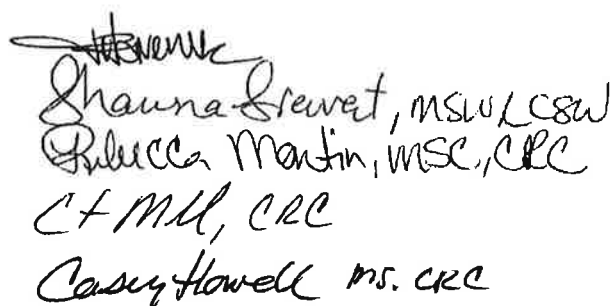 Shawna Grewet, MSW, LCSW
Rebecca Martin, MSC, CRC
CRC
Casey Howell MS. CRC